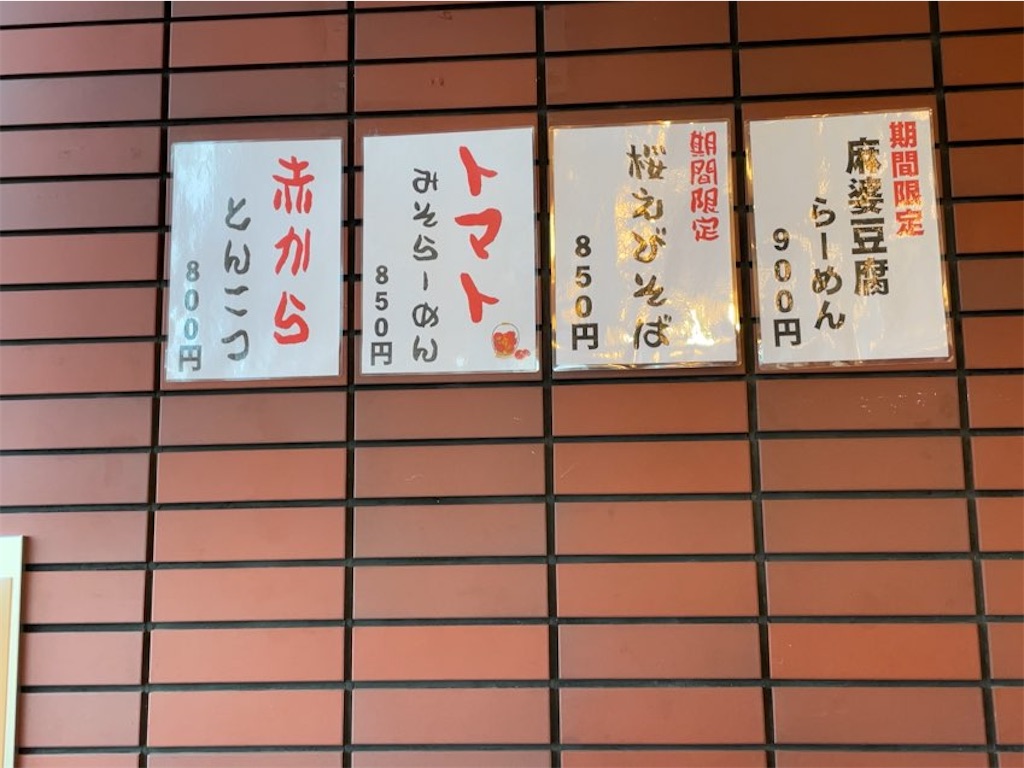 期間限定
麻婆豆腐
らーめん
900円
期間限定
桜えびそば
850円
トマト
みそらーめん
850円
赤から
とんこつ
800円